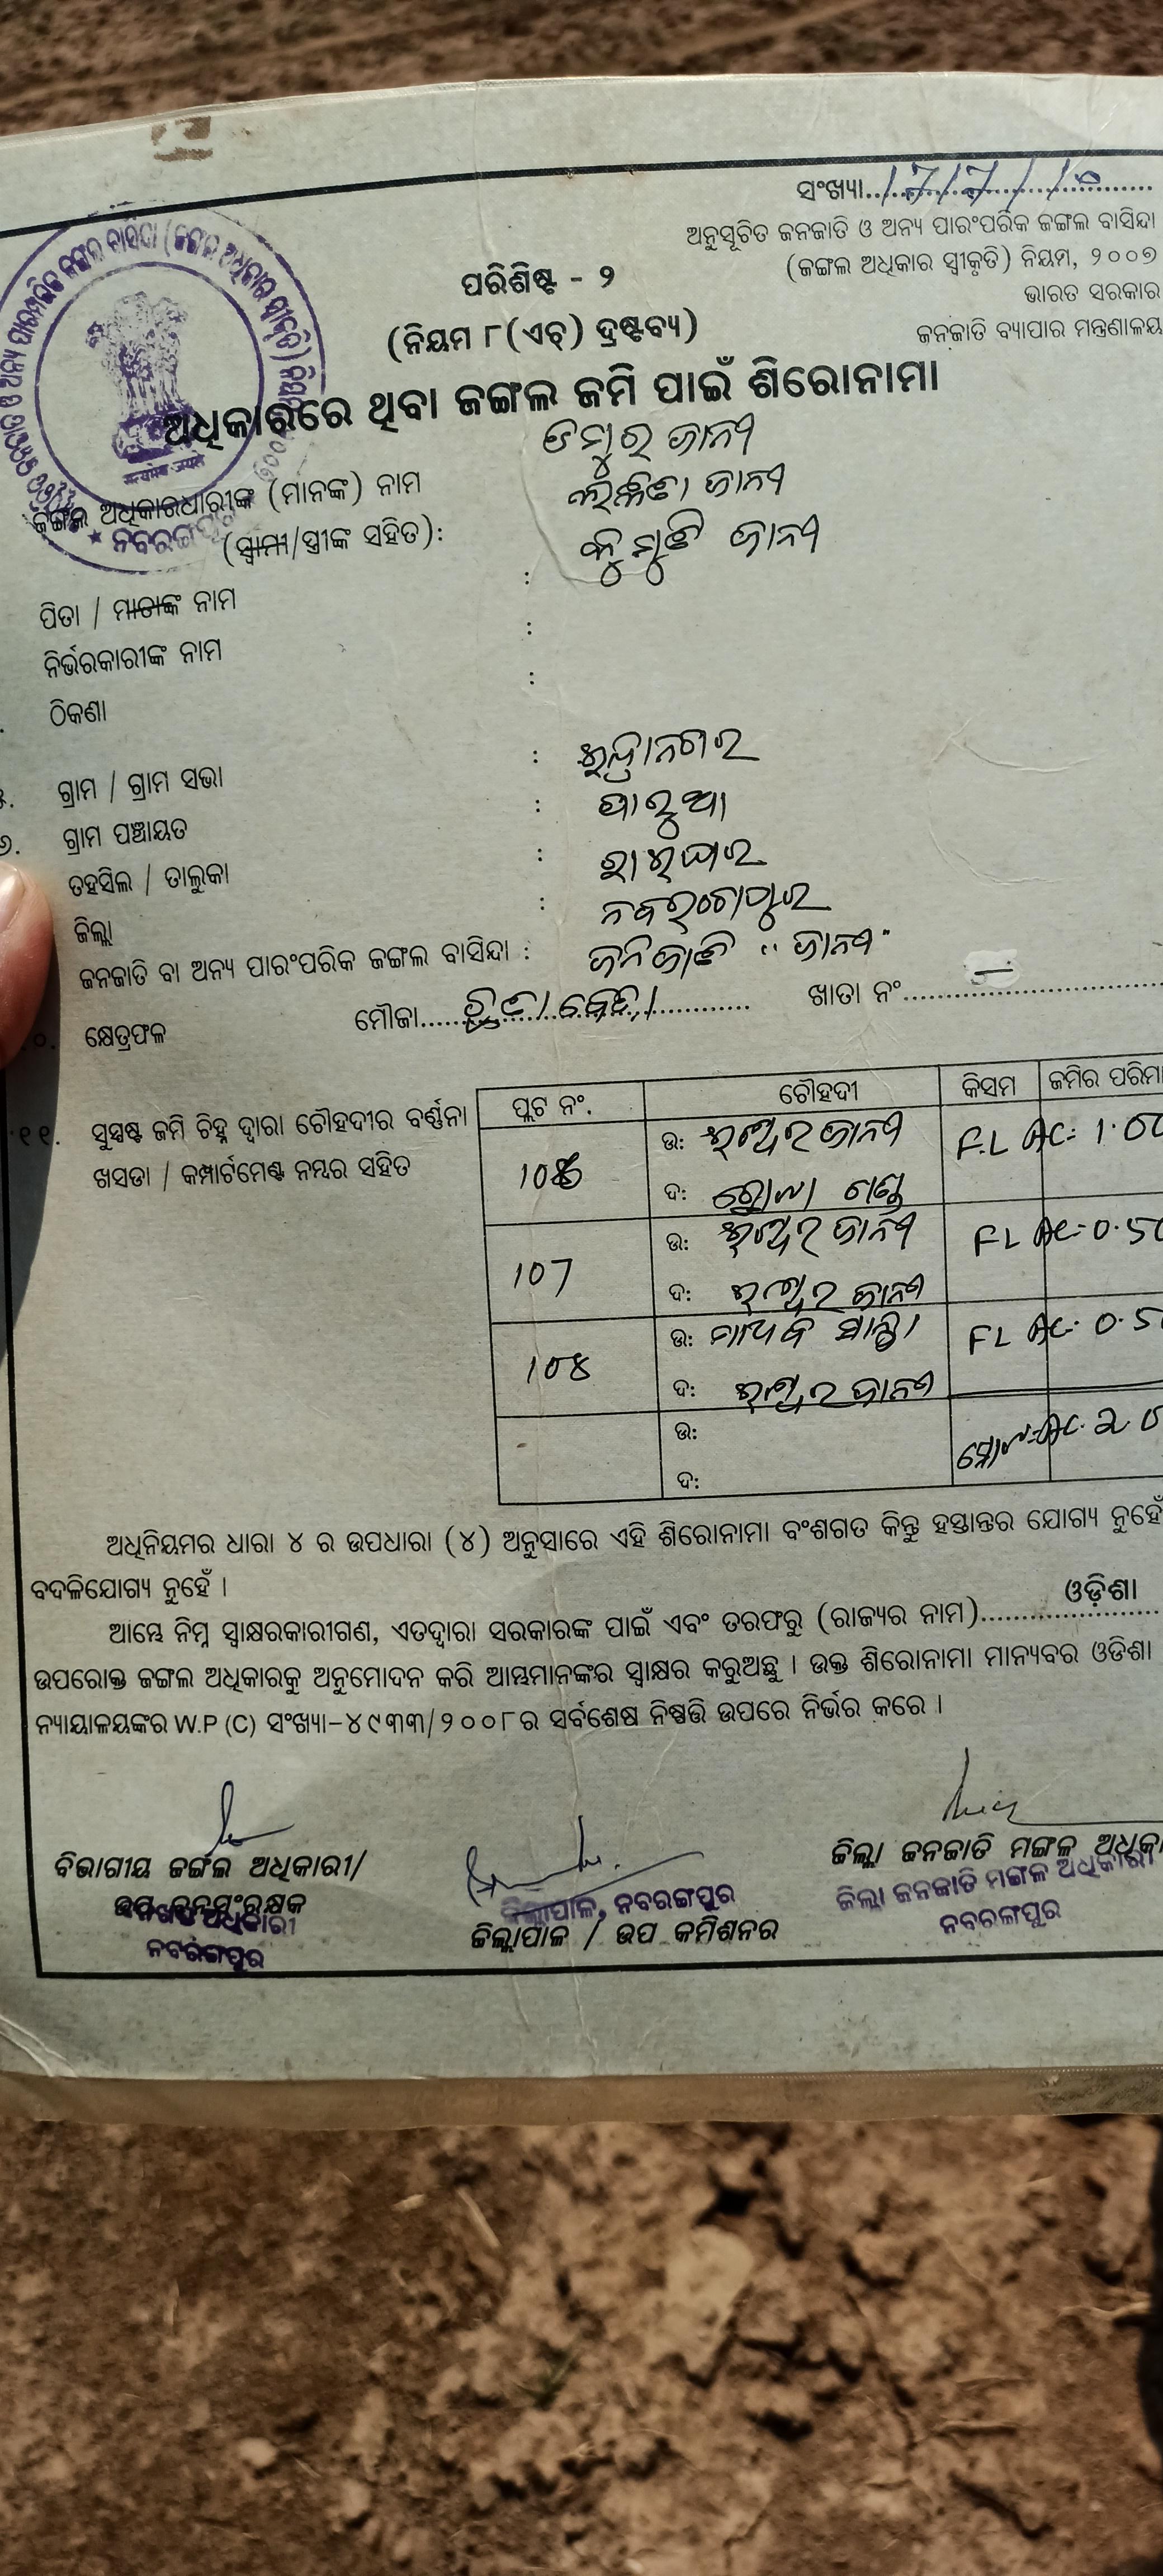 ସଂଖ୍ୟା..1/7/7/1/10
ଅନୁସୂଚିତ ଜନଜାତି ଓ ଅନ୍ୟ ପାରଂପରିକ ଜଙ୍ଗଲ ବାସିନ୍ଦା
(ଜଙ୍ଗଲ ଅଧିକାର ସ୍ୱୀକୃତି) ନିୟମ, ୨୦୦୭
ଭାରତ ସରକାର
ଜନଜାତି ବ୍ୟାପାର ମନ୍ତ୍ରଣାଳୟ
ପରିଶିଷ୍ଟ - ୨
(ନିୟମ ୮(ଏଚ୍) ଦ୍ରଷ୍ଟବ୍ୟ)
ଅଧିକାରରେ ଥିବା ଜଙ୍ଗଲ ଜମି ପାଇଁ ଶିରୋନାମା
ଡମ୍ବୁରୁ ଜାନୀ
ଜଙ୍ଗଲ ଅଧିକାରଧାରୀଙ୍କ (ମାନଙ୍କ) ନାମ
ଜାନୀ
(ସ୍ୱାମୀ/ସ୍ତ୍ରୀଙ୍କ ସହିତ):
ଜାନୀ
ପିତା / ମାତାଙ୍କ ନାମ :
ନିର୍ଭରକାରୀଙ୍କ ନାମ :
ଠିକଣା :
୫. ଗ୍ରାମ / ଗ୍ରାମ ସଭା : ଇନ୍ଦ୍ରାନଗର
୬. ଗ୍ରାମ ପଞ୍ଚାୟତ : ପାରୁଆ
ତହସିଲ / ତାଲୁକା : ରାଇଘର
ଜିଲ୍ଲା : ନବରଂଗପୁର
ଜନଜାତି ବା ଅନ୍ୟ ପାରଂପରିକ ଜଙ୍ଗଲ ବାସିନ୍ଦା : ଜନଜାତି "ଜାନୀ"
୧୦. କ୍ଷେତ୍ରଫଳ ମୌଜା.......... ଖାତା ନଂ..........
୧୧. ସୁସ୍ପଷ୍ଟ ଜମି ଚିହ୍ନ ଦ୍ୱାରା ଚୌହଦୀର ବର୍ଣ୍ଣନା
ଖସଡା / କମ୍ପାର୍ଟମେଣ୍ଟ ନମ୍ବର ସହିତ
ପ୍ଲଟ ନଂ. ଚୌହଦୀ କିସମ ଜମିର ପରିମା
106 ଉ: ଈଶ୍ୱର ଜାନୀ F.L AC= 1.00
ଦ: ଗଣ୍ଡ
107 ଉ: ଈଶ୍ୱର ଜାନୀ FL AC=0.50
ଦ: ଈଶ୍ୱର ଜାନୀ
108 ଉ: FL AC= 0.5
ଦ: ଈଶ୍ୱର ଜାନୀ
ଉ: AC. 2.0
ଦ:
ଅଧିନିୟମର ଧାରା ୪ ର ଉପଧାରା (୪) ଅନୁସାରେ ଏହି ଶିରୋନାମା ବଂଶଗତ କିନ୍ତୁ ହସ୍ତାନ୍ତର ଯୋଗ୍ୟ ନୁହେଁ
ବଦଳିଯୋଗ୍ୟ ନୁହେଁ ।
ଆମ୍ଭେ ନିମ୍ନ ସ୍ୱାକ୍ଷରକାରୀଗଣ, ଏତଦ୍ୱାରା ସରକାରଙ୍କ ପାଇଁ ଏବଂ ତରଫରୁ (ରାଜ୍ୟର ନାମ)..........ଓଡ଼ିଶା
ଉପରୋକ୍ତ ଜଙ୍ଗଲ ଅଧିକାରକୁ ଅନୁମୋଦନ କରି ଆମ୍ଭମାନଙ୍କର ସ୍ୱାକ୍ଷର କରୁଅଛୁ । ଉକ୍ତ ଶିରୋନାମା ମାନ୍ୟବର ଓଡିଶା
ନ୍ୟାୟାଳୟଙ୍କର W.P (C) ସଂଖ୍ୟା-୪୯୩୩/୨୦୦୮ର ସର୍ବଶେଷ ନିଷ୍ପତ୍ତି ଉପରେ ନିର୍ଭର କରେ ।
ବିଭାଗୀୟ ଜଙ୍ଗଲ ଅଧିକାରୀ/
ଉପ ବନସଂରକ୍ଷକ
ନବରଙ୍ଗପୁର
ଜିଲ୍ଲାପାଳ, ନବରଙ୍ଗପୁର
ଜିଲ୍ଲାପାଳ / ଉପ କମିଶନର
ଜିଲ୍ଲା ଜନଜାତି ମଙ୍ଗଳ ଅଧିକା
ଜିଲ୍ଲା ଜନଜାତି ମଙ୍ଗଳ ଅଧିକାରୀ
ନବରଙ୍ଗପୁର